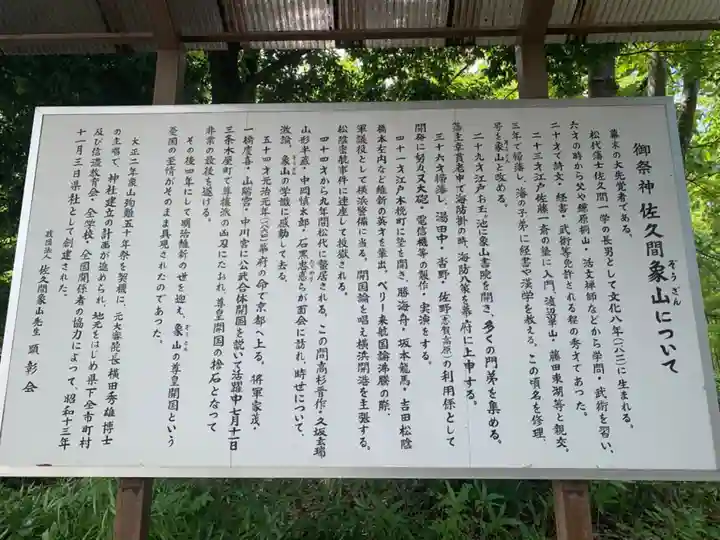 御祭神 佐久間象山について
ぞうざん
幕末の大先覚者である。
松代藩士佐久間一学の長男として文化八年(一八一一)に生まれる。
六才の時から父や鎌原桐山・活文禅師などから学問・武術を習い、
二十才で詩文・経書・武術等免許される程の秀才であった。
二十三才江戸佐藤一斎の塾に入門、渡辺華山・藤田東湖等と親交。
三年で帰藩し、藩の子弟に経書や漢学を教える。この頃名を修理、
号を象山と改める。
二十九才江戸お玉ヶ池に象山書院を開き、多くの門弟を集める。
藩主幸貫老中で海防掛の時、海防八策を幕府に上申する。
三十六才帰藩し、湯田中・沓野・佐野(志賀高原)の利用係として
開発に努力又大砲・電信機等の製作・実演をする。
四十一才江戸木挽町に塾を開き、勝海舟・坂本龍馬・吉田松陰
橋本左内など維新の英才を輩出。ペリー来航国論沸騰の際、
軍議役として横浜警備に当る。開国論を唱え横浜開港を主張する。
松陰密航事件に連座して投獄される。
四十四才から九年間松代に蟄居される。この間高杉晋作・久坂玄瑞
山形半蔵・中岡慎太郎・石黒忠悳らが面会に訪れ、時世について、
激論、象山の学識に感動して去る。
五十四才元治元年(一八六四)幕府の命で京都へ上る。将軍家茂・
一橋慶喜・山階宮・中川宮に公武合体開国を説いて活躍中七月十一日
三条木屋町で尊攘派の凶刃にたおれ、尊皇開国の捨石となって
非業の最後を遂げる。
その後四年にして明治維新の世を迎え、象山の尊皇開国という
ぞうざん
憂国の至情がそのまま具現されたのであった。
大正二年象山殉難五十年祭を契機に、元大審院長横田秀雄博士
の主唱で、神社建立の計画が進められ、地元をはじめ県下全市町村
及び信濃教育会・全学校・全国関係者の協力によって、昭和十三年
十一月三日県社として創建された。
財団法人 佐久間象山先生 顕彰会